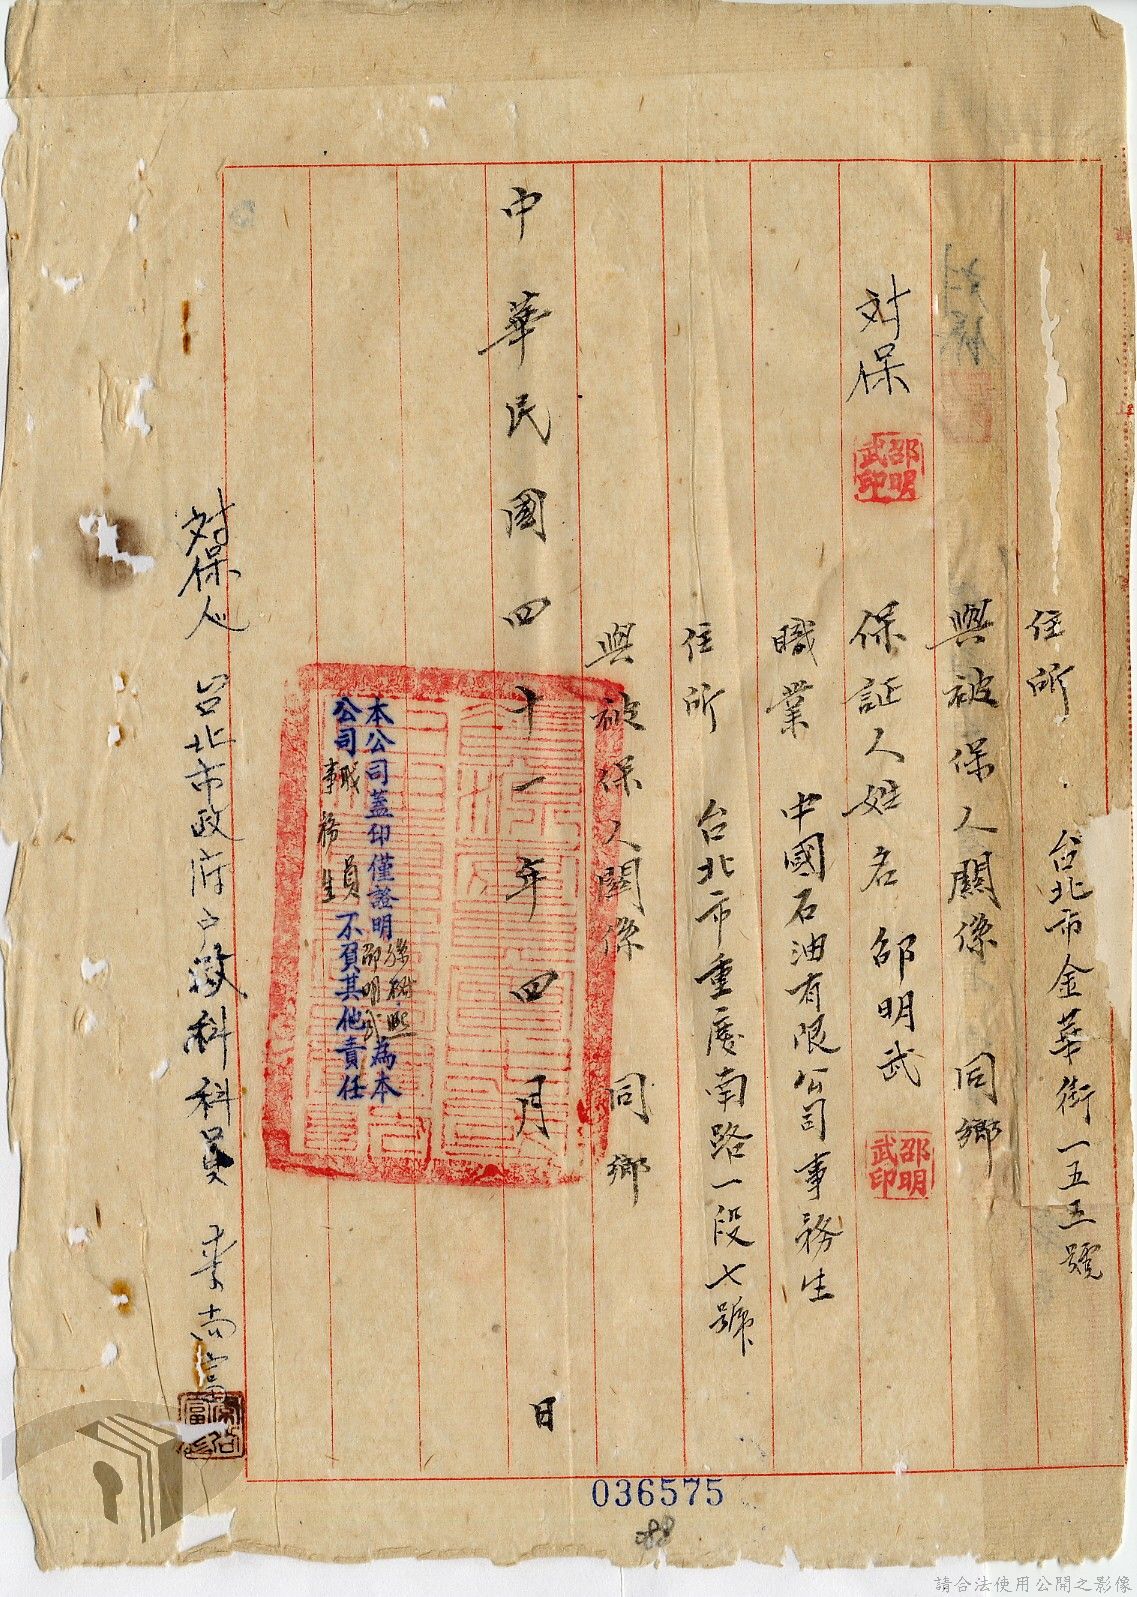 住所 台北市金華街一五五號
與被保人關係 同鄉
対保
邵明武印
保証人姓名 邵明武
邵明武印
職業 中國石油有限公司事務生
住所 台北市重慶南路一段七號
與被保人關係 同鄉
中華民國四十一年四月 日
本公司蓋印僅證明邵明武為本
公司職員事務生不負其他責任
対保人 台北市政府户政科科員
036575
請合法使用公開之影像